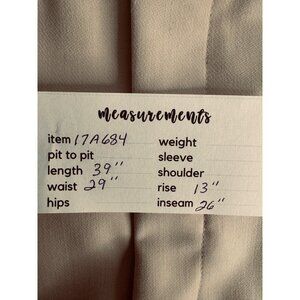 measurements
item 17A684
pit to pit
length 39"
waist 29"
hips
weight
sleeve
shoulder
rise 13"
inseam 26"